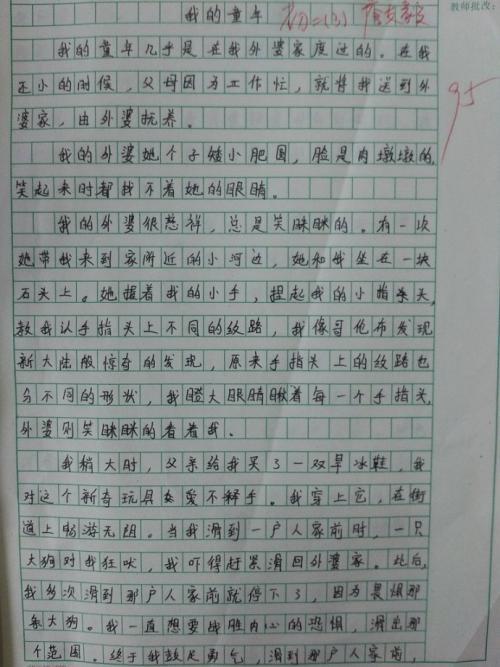 教师批改:
我的童年
初二(3)
95
我的童年几乎是在我外婆家度过的。在我
还小的时候,父母因为工作忙,就将我送到外
婆家,由外婆抚养。
我的外婆她个子矮小肥圆,脸是肉墩墩的,
笑起来时都找不着她的眼睛。
我的外婆很慈祥,总是笑眯眯的。有一次
她带我来到家附近的小河边,她和我坐在一块
石头上。她握着我的小手,捏起我的小指头,
教我认手指头上不同的纹路,我像哥伦布发现
新大陆般惊奇的发现,原来手指头上的纹路也
分不同的形状,我瞪大眼睛瞅着每一个手指头,
外婆则笑眯眯的看着我、
我稍大时,父亲给我买了一双旱冰鞋,我
对这个新奇玩具安爱不释手。我穿上它,在街
道上畅游无阻。当我滑到一户人家前时,一只
大狗对我狂吠,我吓得赶紧滑回外婆家。此后,
我多次滑到那户人家前就停下了,因为畏惧那
条大狗。我一直想要战胜内心的恐惧,滑出那
个范围。终于我鼓足勇气,滑到那户人家前,